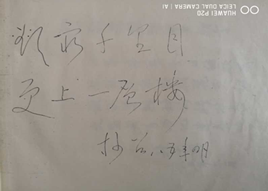 HUAWEI P20
LEICA DUAL CAMERA | AI
欲穷千里目
更上一层楼